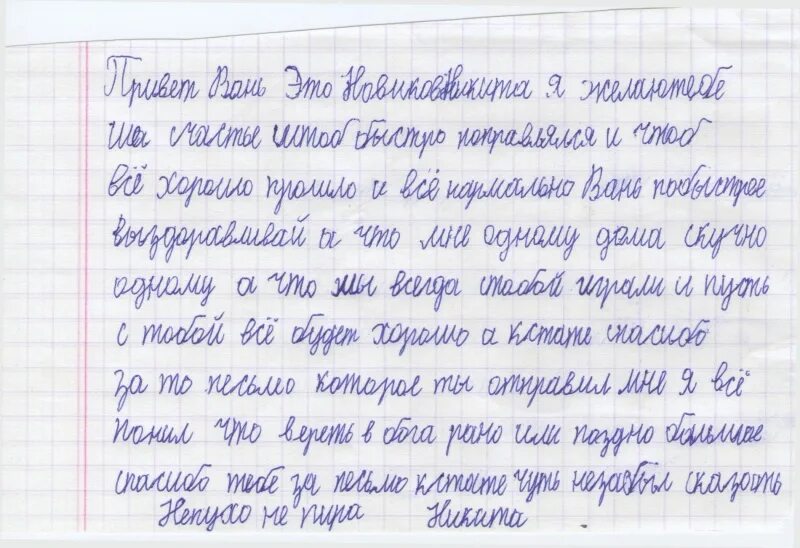 Привет Вань Это НовиковНикита я желаютебе
счастье штоб быстро поправлялся и чтоб
всё хорошо прошло и всё нармально Вань побыстрое
выздоравливай а что мне одному дома скучно
одному а что мы всегда стобой играли и пусть
с тобой всё будет хорошо а кстате спасибо
за то песьмо которое ты отправил мне я всё
понил что вереть в бога рано или поздно большое
спасибо тебе за песьмо кстате чуть незабыл сказать
Непухо не пира Никита